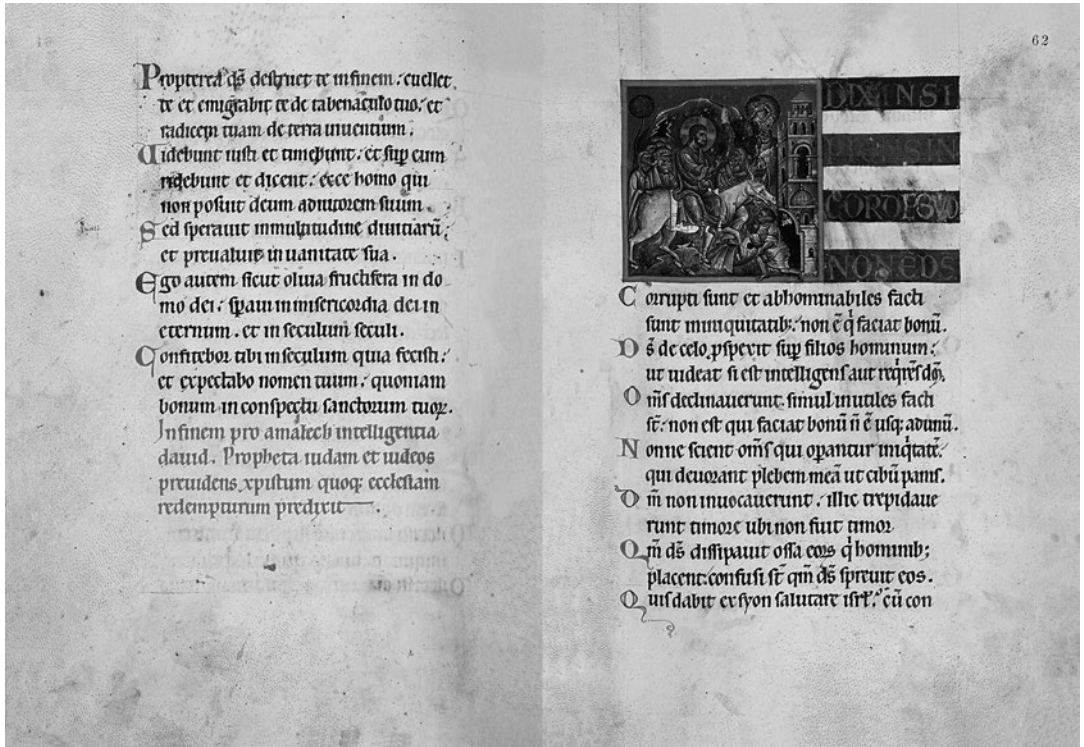 Propterea ds̄ destruet te in finem: euellet
te et emigrabit te de tabernaculo tuo: et
radicem tuam de terra uiuentium.
Uidebunt iusti et timebunt: et sup eum
ridebunt et dicent: ecce homo qui
non posuit deum adiutorem suum.
Sed sperauit in multitudine diuitiarū:
et preualuit in uanitate sua.
Ego autem sicut oliua fructifera in do
mo dei: speraui in misericordia dei in
eternum. et in seculum seculi.
Confitebor tibi in seculum quia fecisti:
et expectabo nomen tuum: quoniam
bonum in conspectu sanctorum tuoꝝ.
In finem pro amalech intelligentia
dauid. Propheta iudam et iudeos
preuidens, xpistum quoq; ecclesiam
redempturum predixit
62
DIXIT INSI
PIENS IN
CORDE SVO
NON E DS
Corrupti sunt et abhominabiles facti
sunt in iniquitatib;: non ē q̇ faciat bonū.
Ds̄ de celo ꝓspexit sup filios hominum:
ut uideat si est intelligens aut reqͥrēs dm̄.
Om̄s declinauerunt. simul inutiles facti
st̄: non est qui faciat bonū n̄ ē usq; ad unū.
Nonne scient om̄s qui oꝑantur iniqͥtatē:
qui deuorant plebem meā ut cibū panis.
Dm̄ non inuocauerunt: illic trepidaue
runt timore ubi non fuit timor
Qm̄ ds̄ dissipauit ossa eoꝝ q̇ hominib;
placent: confusi st̄ qm̄ ds̄ spreuit eos.
Quis dabit ex syon salutare isrl̄: cū con